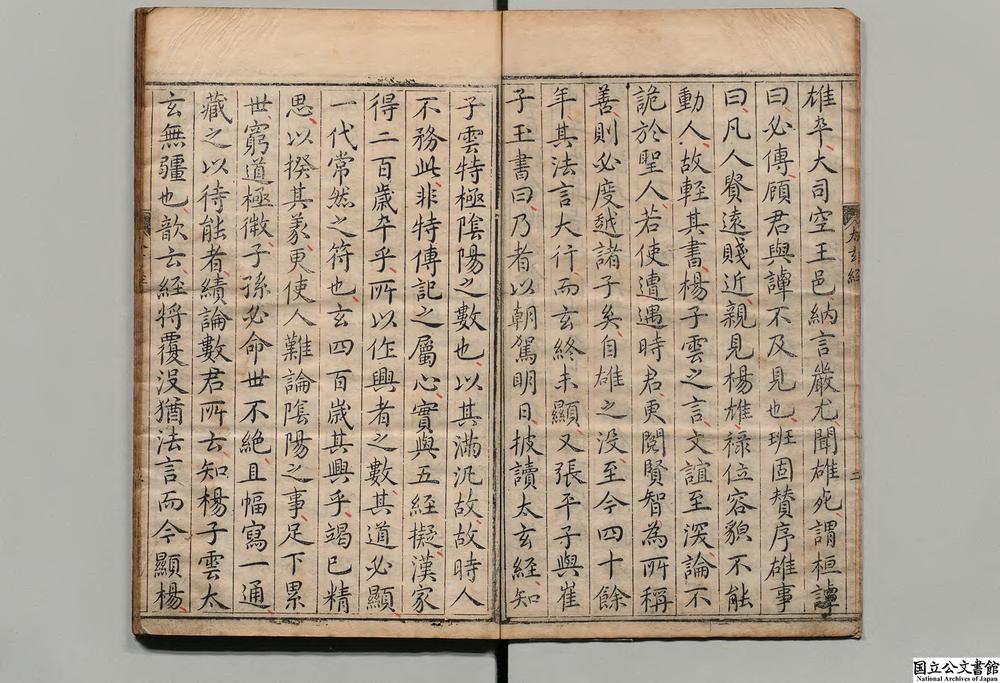 雄卒大司空王邑納言嚴尤聞雄死謂桓譚
曰必傳顧君與譚不及見也班固贊序雄事
曰凡人賤近親見楊雄祿位容貌不能
動人故輕其書楊子雲之言文誼至深論不
詭於聖人若使遭遇時君更閱賢智為所稱
善則必度越諸子矣自雄之没至今四十餘
年其法言大行而玄終未顯又張平子與崔
子玉書曰乃者以朝駕明日披讀太玄經知
子雲特極陰陽之數也以其滿汎故故時人
不務此非特傳記之屬心實與五經擬漢家
得二百歲卒乎所以作興者之數其道必顯
一代常然之符也玄四百歲其興乎竭已精
思以揆其義更使人難論陰陽之事足下累
世窮道極微子孫必命世不絶且幅寫一通
藏之以待能者績論數君所云知楊子雲太
玄無疆也歆云經將覆没猶法言而今顯楊
太玄經
国立公文書館
National Archives of Japan